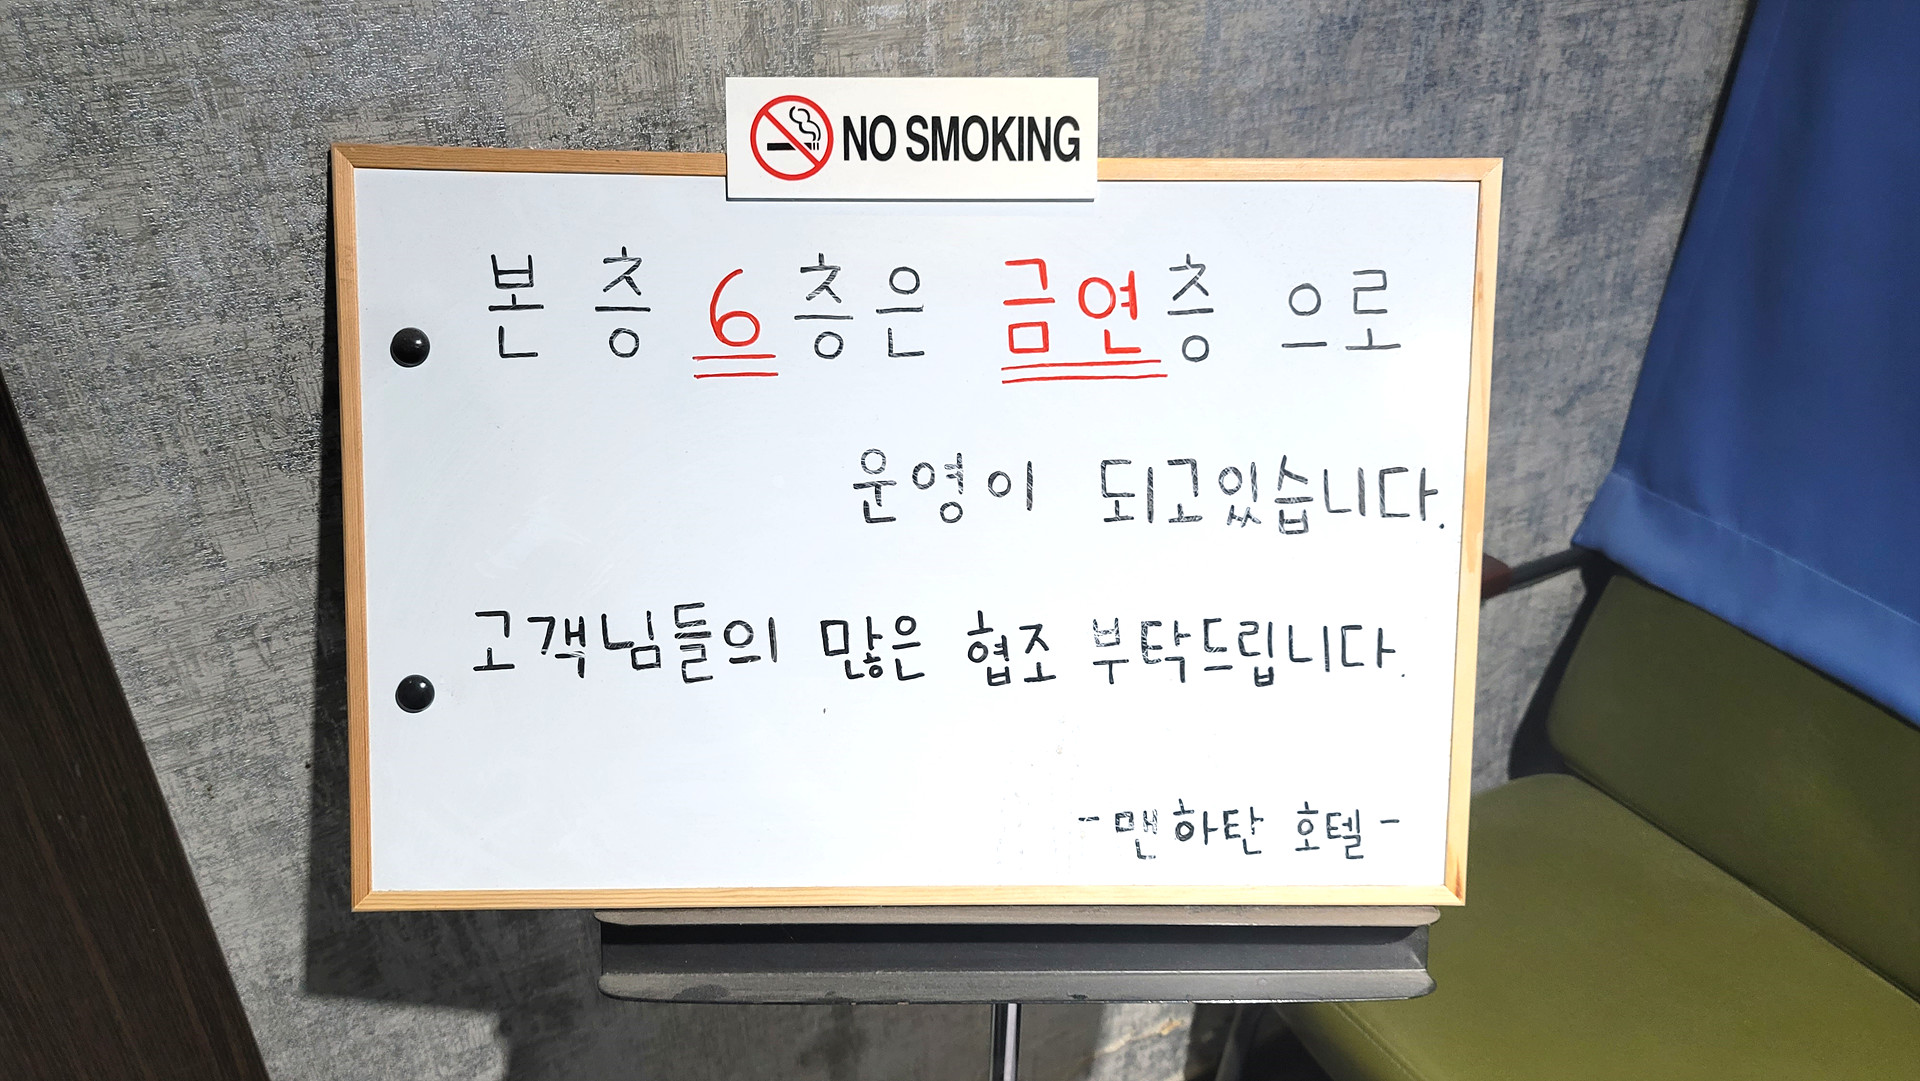 NO SMOKING
본 층 6층은 금연층 으로
운영이 되고있습니다.
고객님들의 많은 협조 부탁드립니다.
-맨하탄 호텔-